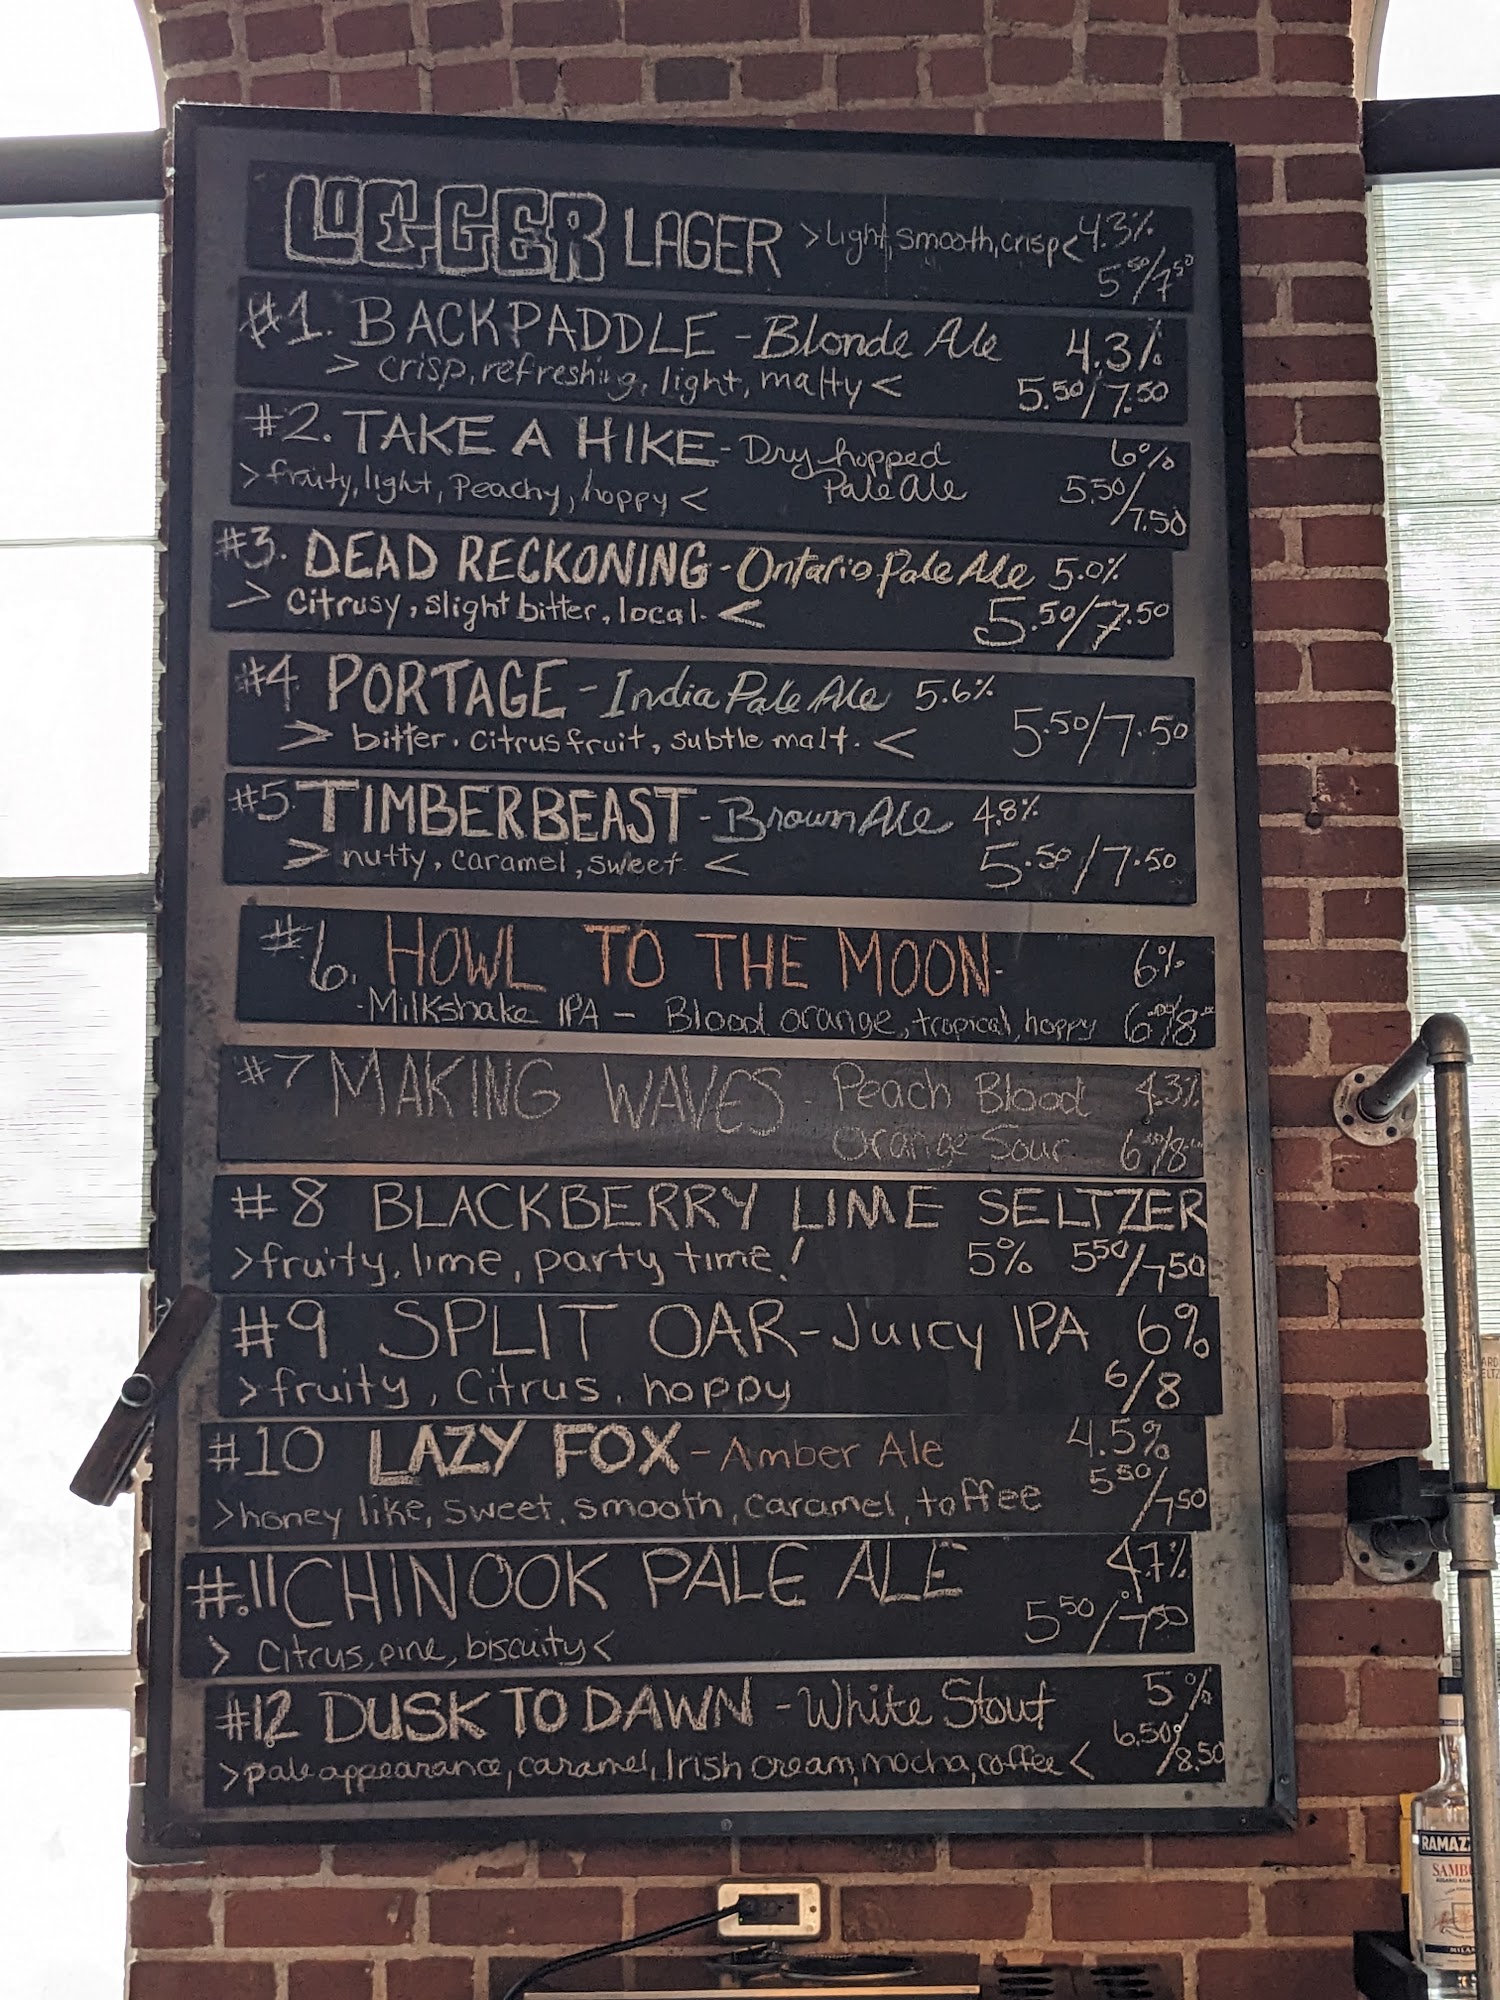 LOGGER LAGER >Light, smooth, crisp< 4.3%
5.50/7.50
#1. BACKPADDLE - Blonde Ale 4.3%
> crisp, refreshing, light, malty < 5.50/7.50
#2. TAKE A HIKE - Dry hopped 6%
>fruity, light, Peachy, hoppy < Pale Ale 5.50/
7.50
#3. DEAD RECKONING - Ontario Pale Ale 5.0%
> citrusy, slight bitter, local. < 5.50/7.50
#4 PORTAGE - India Pale Ale 5.6%
> bitter. citrus fruit, subtle malt. < 5.50/7.50
#5. TIMBERBEAST - Brown Ale 4.8%
> nutty, caramel, sweet < 5.50/7.50
#6. HOWL TO THE MOON - 6%
- Milkshake IPA - Blood orange, tropical, hoppy 6.00/8.00
#7 MAKING WAVES - Peach Blood 4.3%
Orange Sour
#8 BLACKBERRY LIME SELTZER
>fruity, lime, party time! 5% 5.50/7.50
#9 SPLIT OAR - Juicy IPA 6%
>fruity, Citrus, hoppy 6/8
#10 LAZY FOX - Amber Ale 4.5%
>honey like, sweet, smooth, caramel, toffee 5.50/7.50
#.11 CHINOOK PALE ALE 4.7%
5.50/7.50
> Citrus, pine, biscuity<
#12 DUSK TO DAWN - White Stout 5%
>pale appearance, caramel, Irish cream, mocha, coffee < 6.50/8.50
RAMAZZ
SAMBU
MILAN